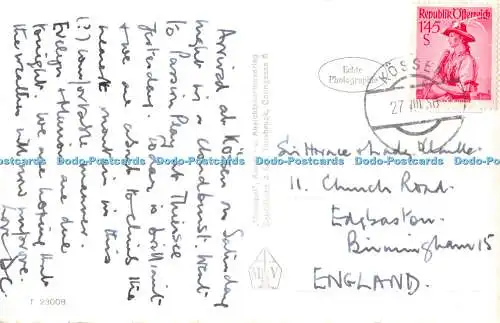 Arrived at Kössen on Saturday
night in a cloudburst. Went
to Passion Play at Thiersee
yesterday. Today is brilliant
& we are about to climb the
nearest mountain in this
(?) comfortable manner.
Evelyn & are due
tonight. We are hoping that
the weather will now improve.
Love D.C.
T 23009
Echte
Photographie
Republik Österreich
1'45
S
KÖSSE
27 VIII 56
Sir Horace & Lady Clarke
11. Church Road.
Edgbaston.
Birmingham 15
ENGLAND.
Dodo-Postcards Dodo-Postcards Dodo-Postcards Dodo-Postcards Dodo-Postcards